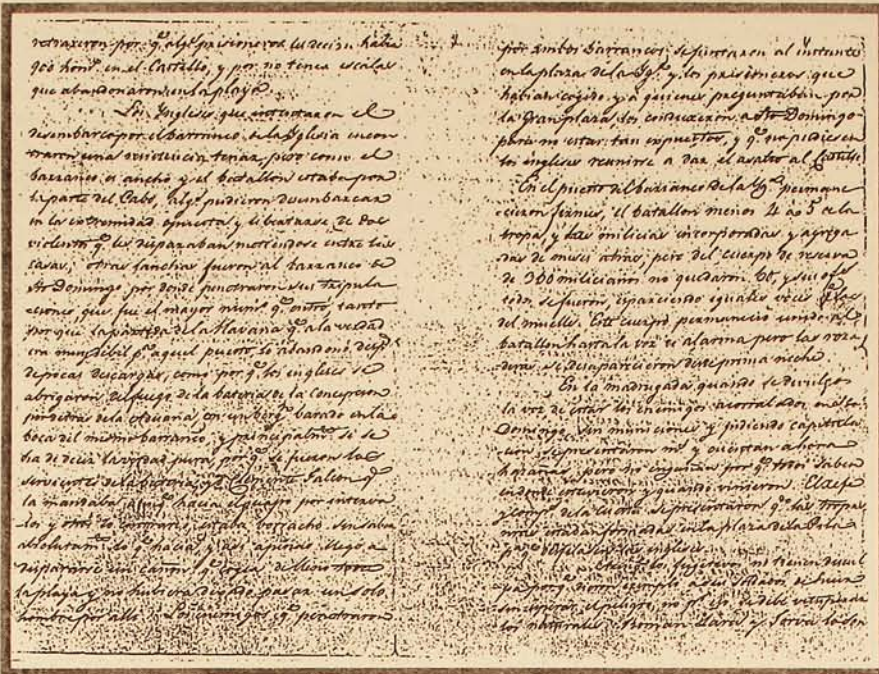 retraxeron por q.e alg.s prisioneros les decian habia
900 hom.s en el Castillo, y por no tener escalas
que abandonaron en la playa.
Los Yngleses que intentaron el
desembarco por el barranco de la Yglesia encon
traron una resistencia tenaz, pero como el
barranco es ancho y el batallon estaba por
la parte del Cabo, alg.s pudieron desembarcar
en la extremidad opuesta y libertarse de
violento q.e les disparaban metiendose entre las
casas; otras lanchas fueron al barranco de
Sto Domingo por donde penetraron sus tripula
ciones, que fue el mayor num.o q.e entró, tanto
por que la partida de la Havana q.e a la verdad
era muy debil p.a aquel puesto, lo abandonó desp.s
de pocas descargas, como por q.e los ingleses se
abrigaron del fuego de la bateria de la Concepcion
por detras de la Aduana, en un berg.n barado en la
boca del mismo barranco, y principalm.te si se
ha de decir la verdad pura, por q.e se fueron los
sirvientes de la bateria, y Clemente Falcon q.e
la mandaba hacia el guapo por interva
los y otros, estaba borracho sin saber
absolutam.te lo q.e hacia, y asi apenas llegó a
dispararse un cañon q.e cogia
la playa y no hubiera dejado pasar un solo
hombre por alli. Los enemigos q.e penetraron
por ambos barrancos se juntaron al instante
en la plaza de la Yg.a y los prisioneros que
habian cogido y a quienes preguntaban por
la gran plaza, los conduxeron a Sto Domingo
para no estar tan expuestos, y q.e no pudiesen
los ingleses reunirse a dar el asalto al Castillo
En el puesto del barranco de la Yg.a permane
cieron firmes, el batallon menos 4 a 5 de la
tropa, y las milicias incorporadas y agrega
das de meses atras, pero del cuerpo de reserva
de 300 milicianos no quedaron 60, y sus of.s
todos se fueron, esparciendo iguales voces q.e los
del muelle. Este cuerpo permaneció unido al
batallon hasta la voz de alarma pero las roza
deras se desaparecieron desde prima noche.
En la madrugada quando se divulgó
la voz de estar los enemigos acorralados en Sto
Domingo, sin municiones y pidiendo capitula
cion se presentaron m.s y cuentan ahora
hazañas, pero no engañan por q.e todos saben
en donde estuvieron y quando vinieron. El xefe
se presentaron q.e las tropas
estaban formadas en la plaza de la Pila
los ingleses.
fugitivos no tienen discul
pa por q.e dieron exemplo a sus soldados de huir
sin esperar el peligro, no p.r eso se debe vituperar
los naturales